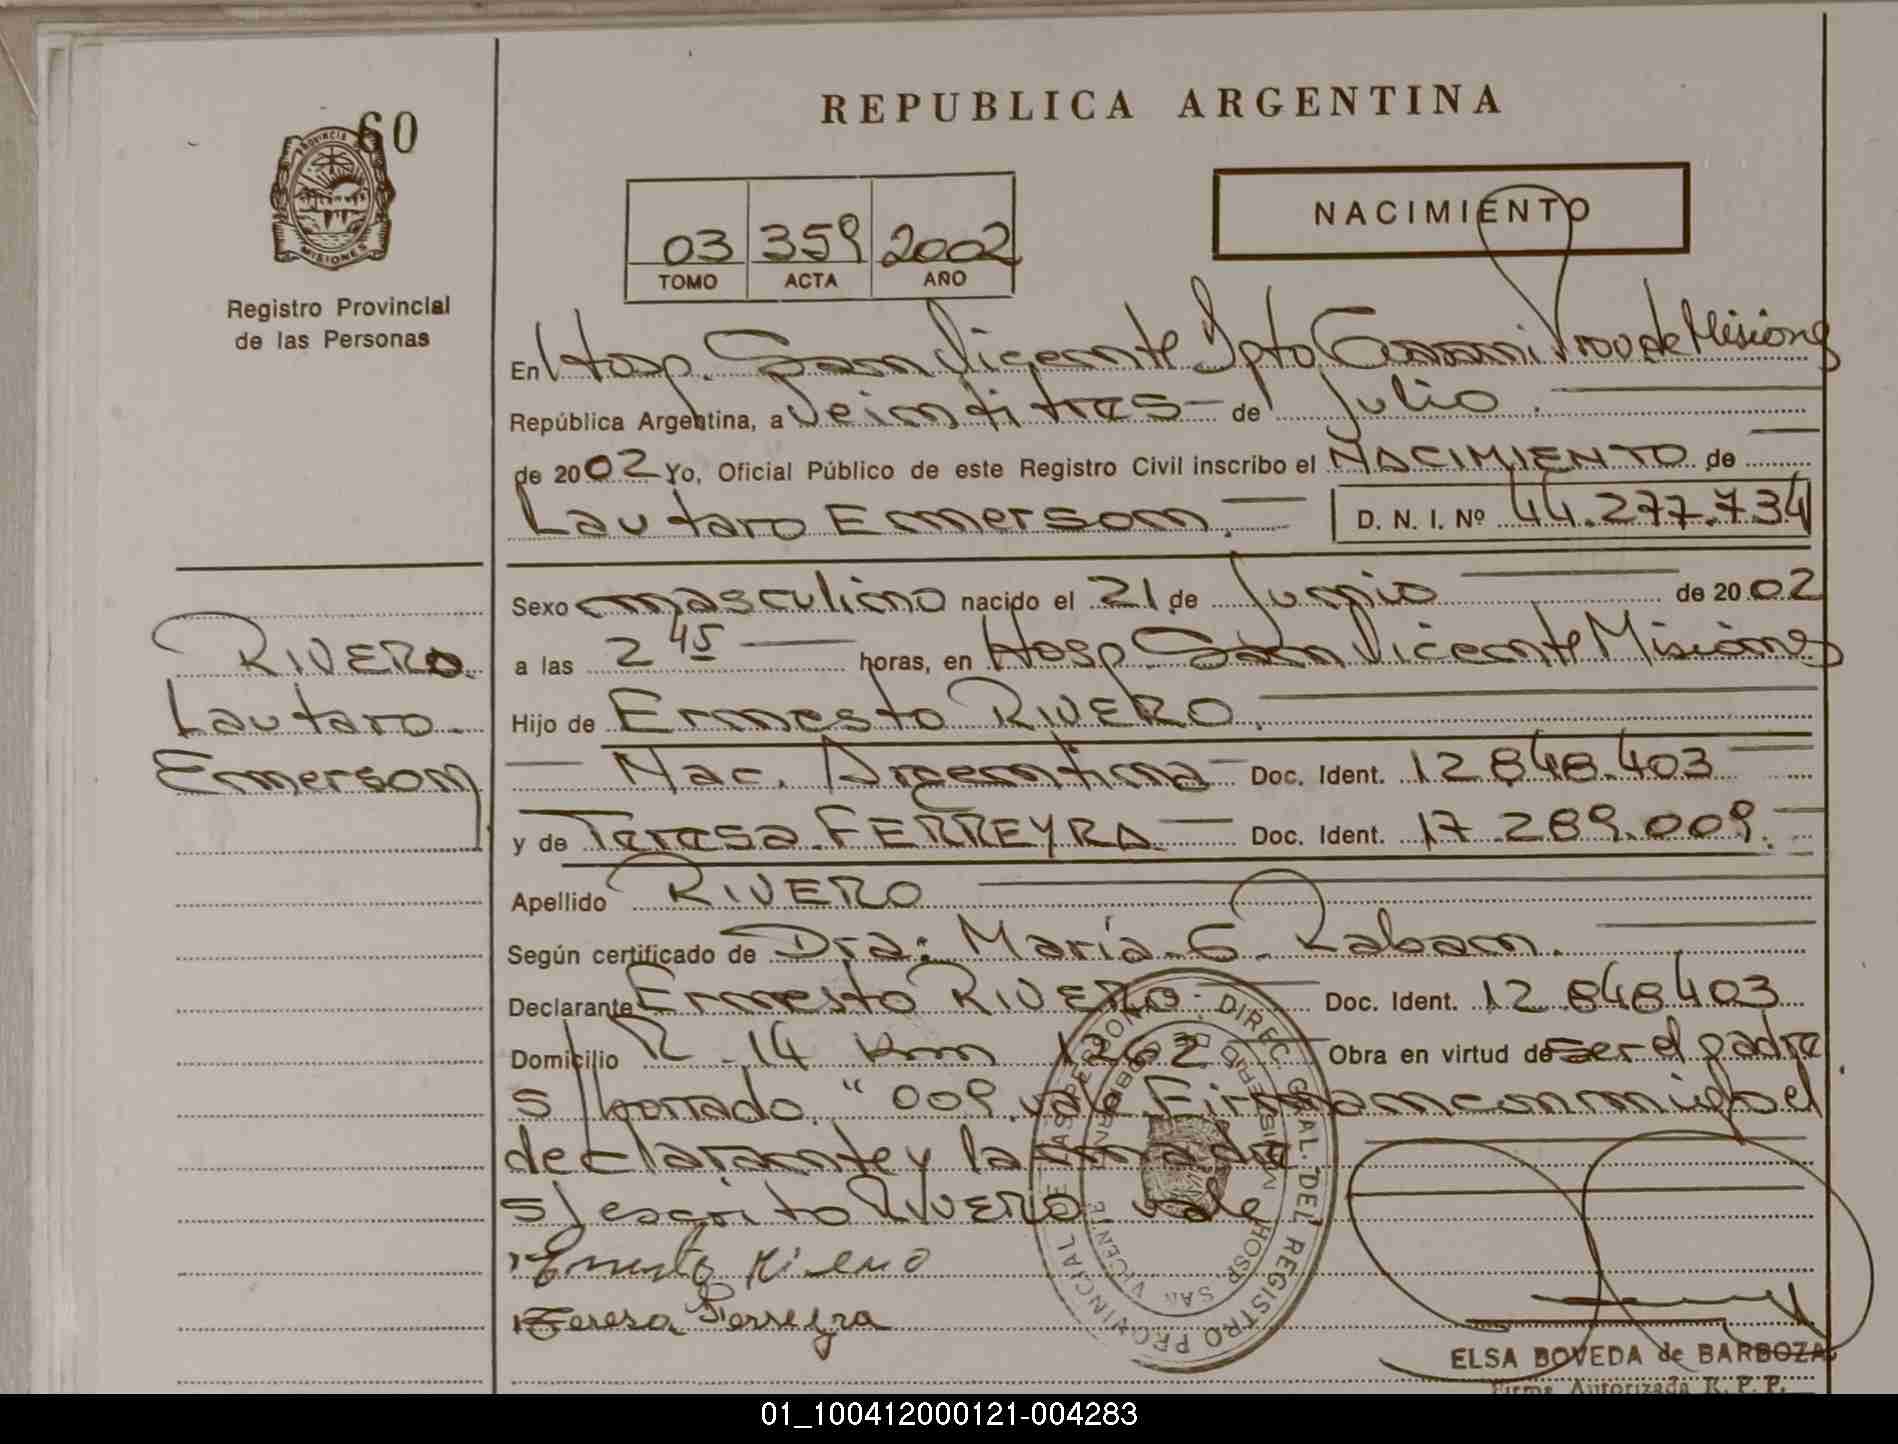 60
PROVINCIA
MISIONES
Registro Provincial
de las Personas
REPUBLICA ARGENTINA
03 359 2002
TOMO ACTA AÑO
NACIMIENTO
En Hosp. San Vicente Dpto Guaraní Prov de Misiones
República Argentina, a Veintitres de Julio
de 2002 Yo, Oficial Público de este Registro Civil inscribo el NACIMIENTO de
Lautaro Emerson. D. N. I. Nº 44.277.734
Sexo masculino nacido el 21 de Junio de 2002
a las 2 45 horas, en Hosp San Vicente Misiones
Hijo de Ernesto RIVERO.
Nac. Argentina Doc. Ident. 12.848.403
y de Teresa FERREYRA Doc. Ident. 17.289.009.
Apellido RIVERO
Según certificado de Dra: María G. Raban.
Declarante Ernesto RIVERO Doc. Ident. 12 848403
Domicilio R. 14 Km 1262 Obra en virtud de ser el padre
s/borrado "009 vale Firman conmigo el
declarante y la madre
s/escrito RIVERO vale
Ernesto Rivero
Teresa Ferreyra
RIVERO
Lautaro
Emerson
DIREC. GRAL. DEL REGISTRO PROVINCIAL DE LAS PERSONAS
HOSP. SAN VICENTE
ELSA BOVEDA de BARBOZA
Firma Autorizada R. P. P.
01_100412000121-004283